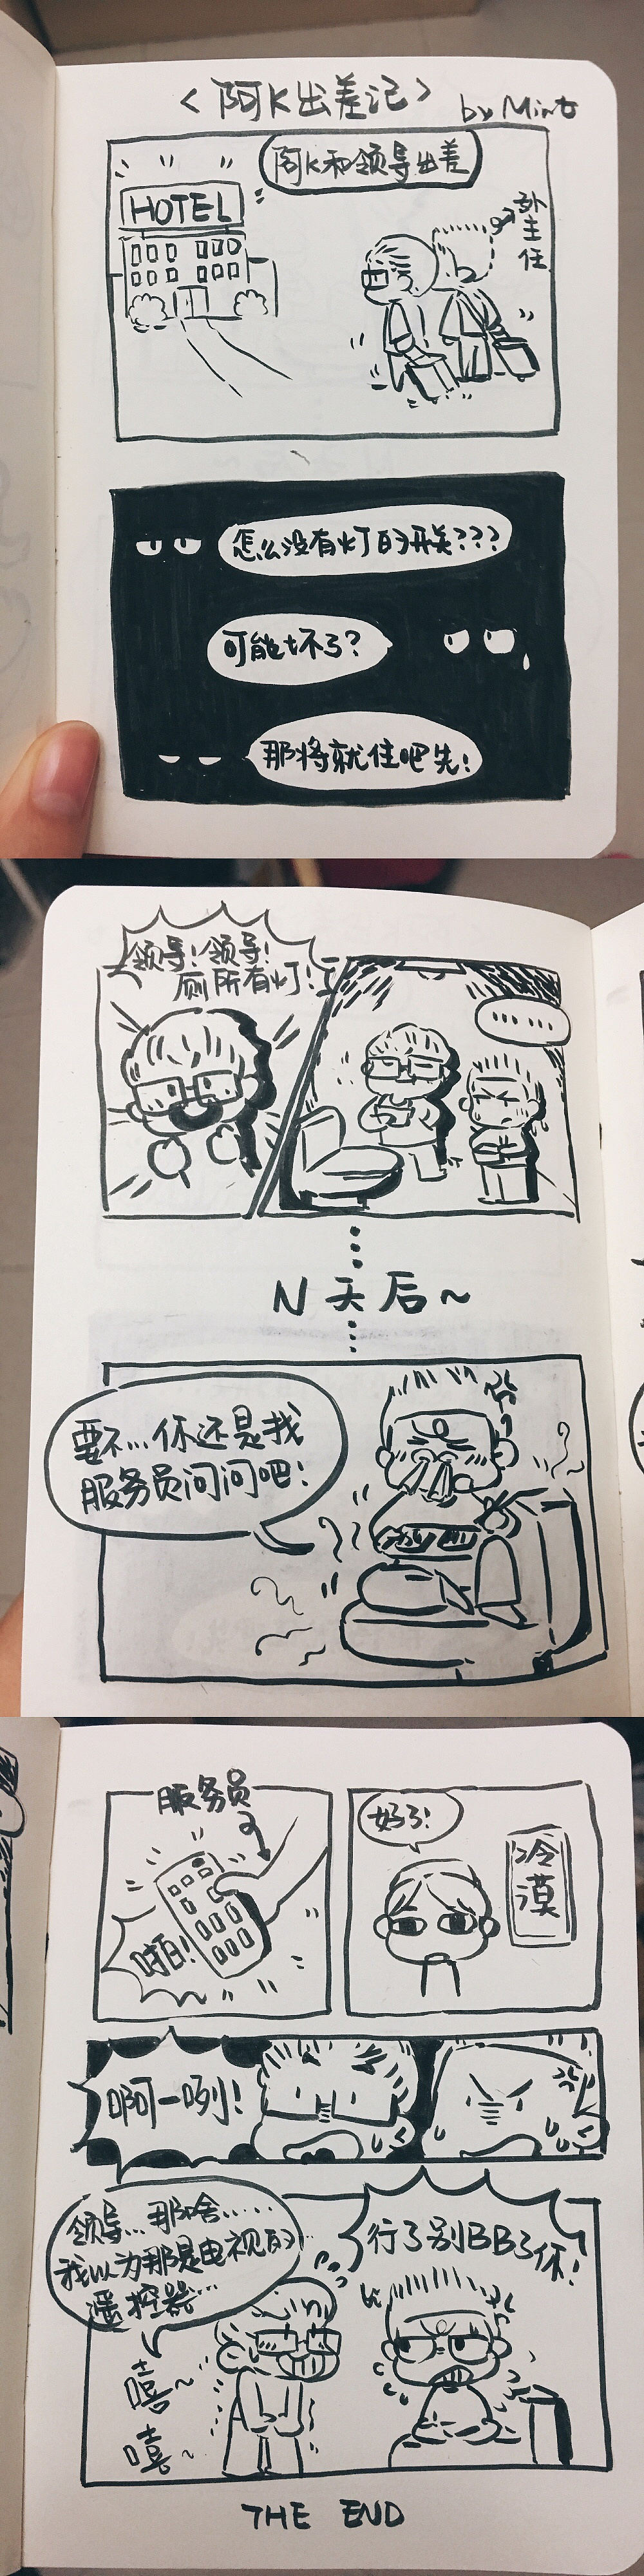 <阿K出差记>
by Mint
阿K和领导出差
HOTEL
孙
主
任
怎么没有灯的开关???
可能坏了?
那将就住吧先!
领导!领导!
厕所有灯!
......
N天后~
要不...你还是找
服务员问问吧!
服务员
啪!
好了!
冷
漠
啊一咧!
领导...那啥......
我以为那是电视的
遥控器...
行了别BB了你!
嘻~
嘻~
THE END